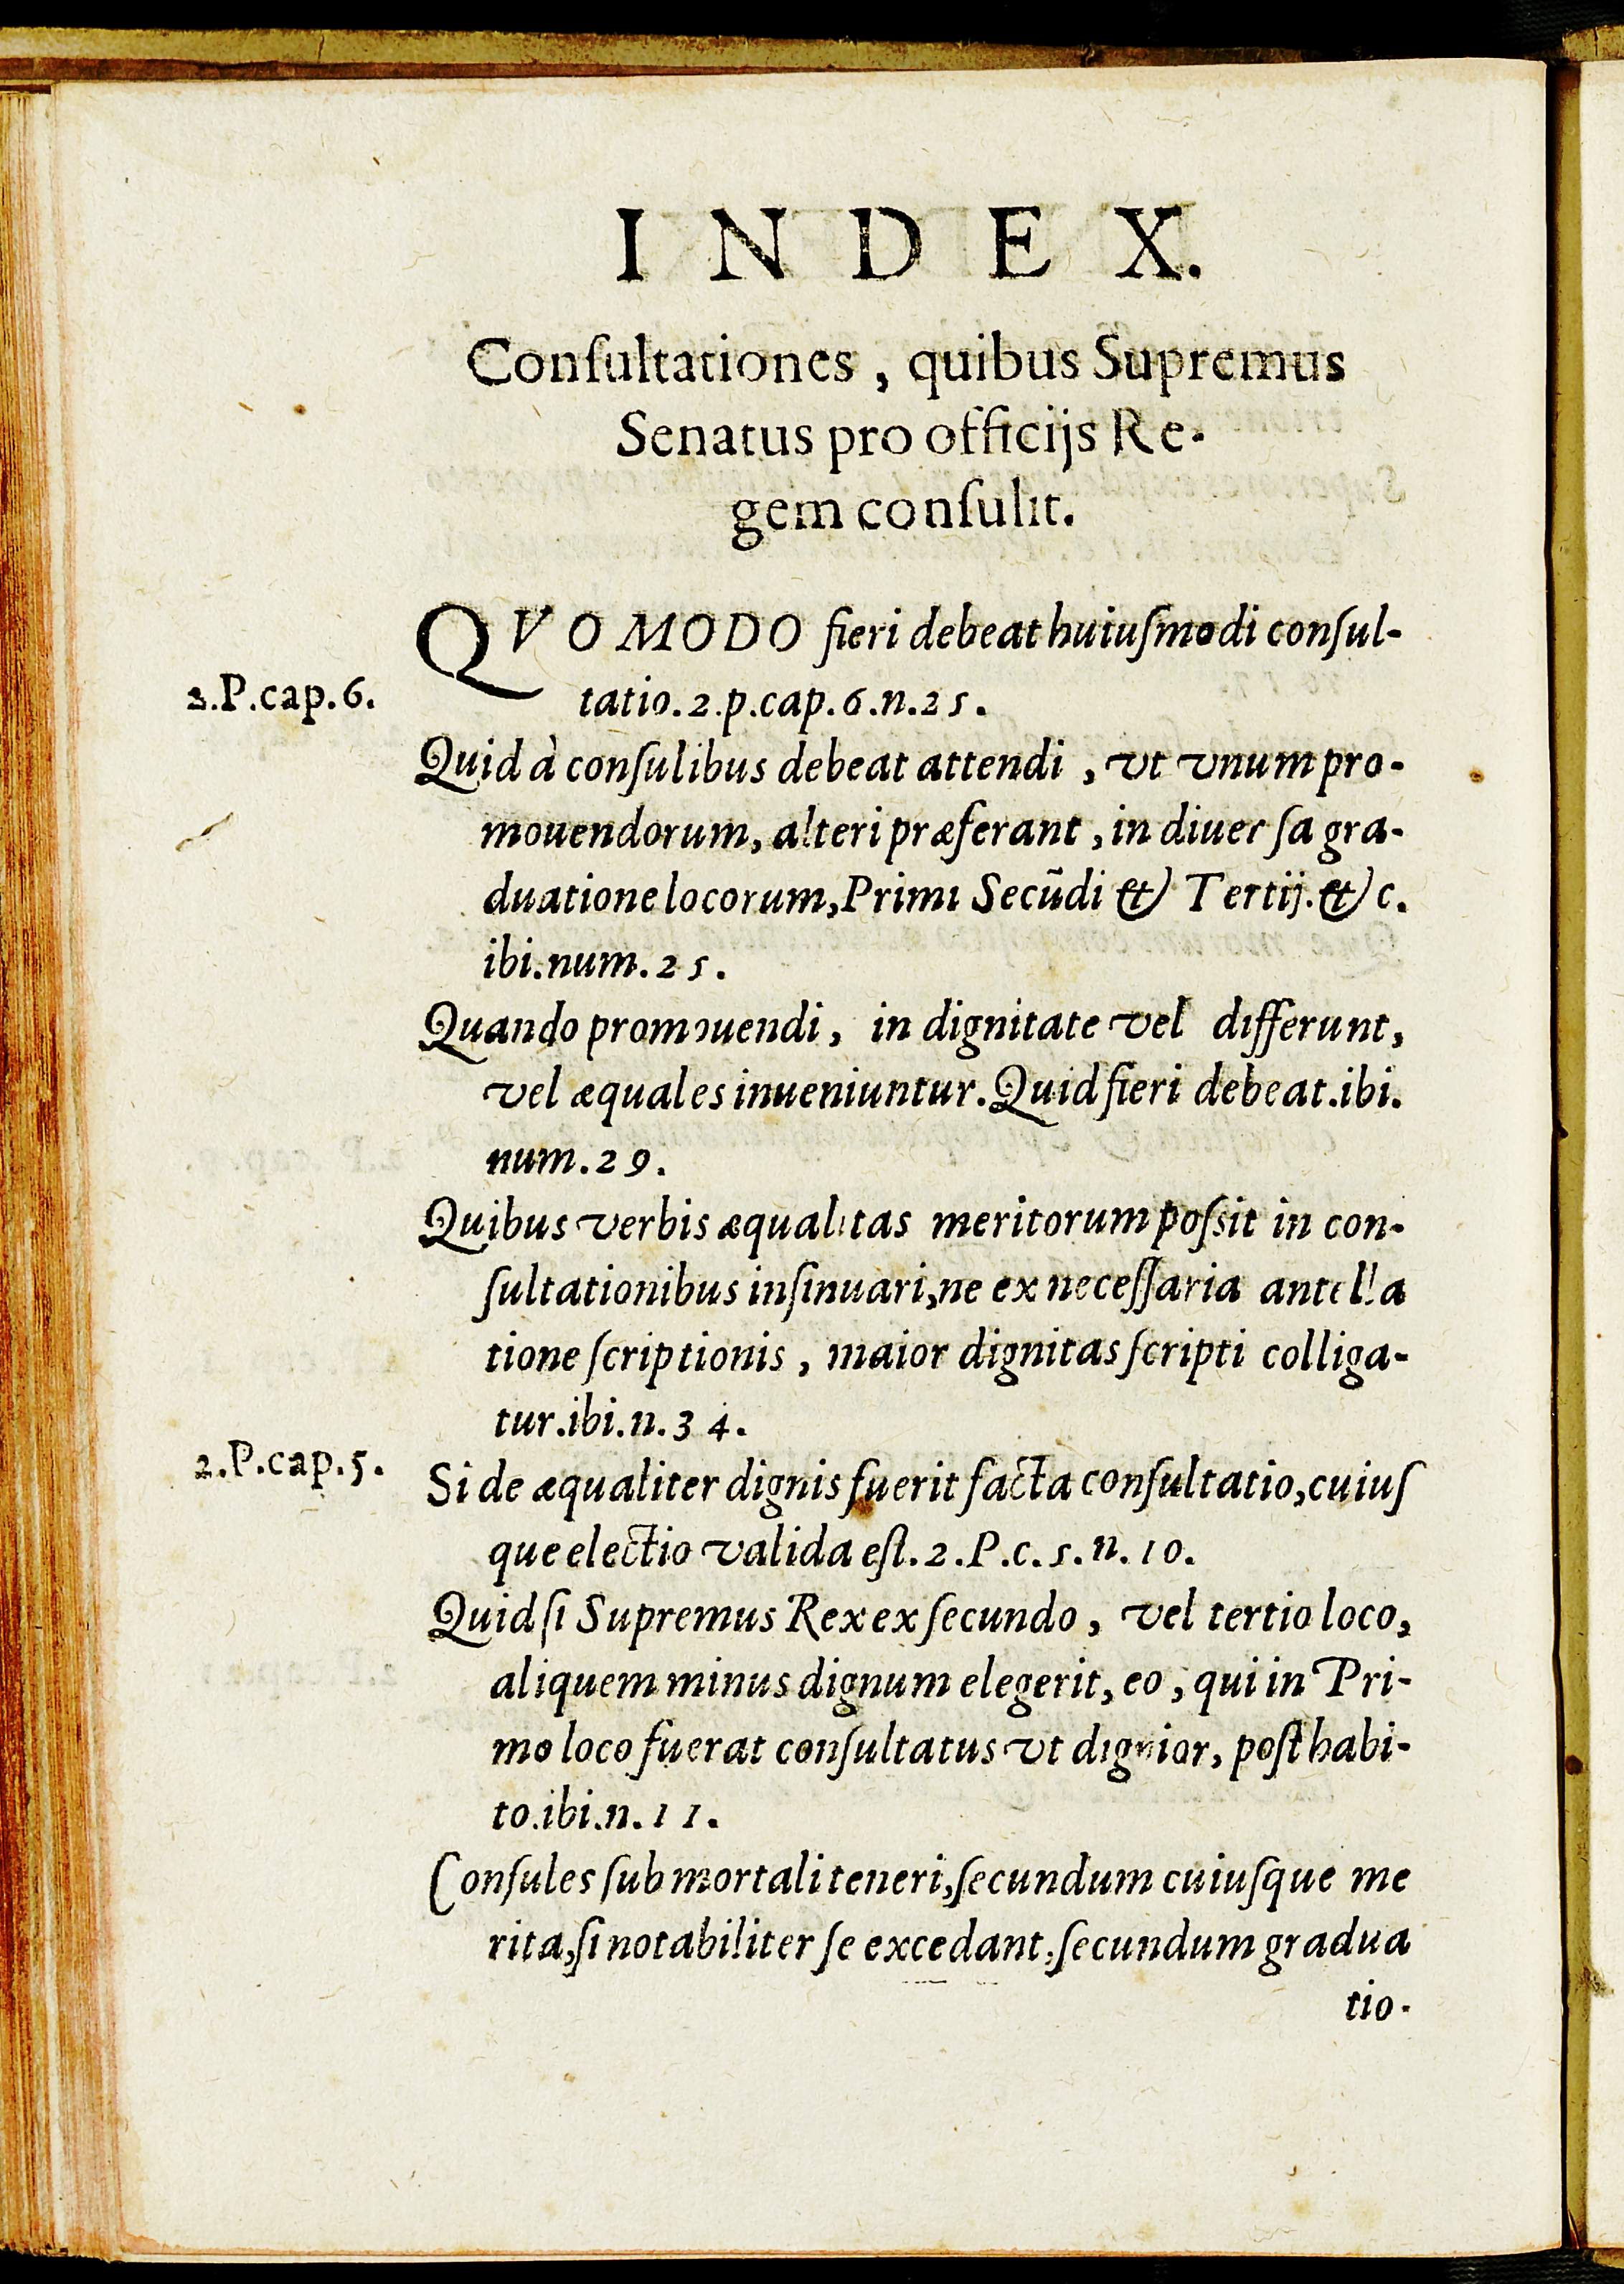 INDEX.
Conſultationes, quibus Supremus
Senatus pro officijs Re-
gem conſulit.
QVOMODO fieri debeat huiuſmodi conſul-
2.P.cap.6.
tatio.2.p.cap.6.n.25.
Quid à conſulibus debeat attendi, vt vnum pro-
mouendorum, alteri præferant, in diuerſa gra-
duatione locorum, Primi Secũdi & Tertij. &c.
ibi.num.25.
Quando promouendi, in dignitate vel differunt,
vel æquales inueniuntur. Quid fieri debeat.ibi.
num.29.
Quibus verbis æqualitas meritorum poſsit in con-
ſultationibus inſinuari, ne ex neceſſaria antella
tione ſcriptionis, maior dignitas ſcripti colliga-
tur.ibi.n.34.
2.P.cap.5.
Si de æqualiter dignis fuerit facta conſultatio, cuiuſ
que electio valida eſt.2.P.c.5.n.10.
Quid ſi Supremus Rex ex ſecundo, vel tertio loco,
aliquem minus dignum elegerit, eo, qui in Pri-
mo loco fuerat conſultatus vt dignior, poſthabi-
to.ibi.n.11.
Conſules ſub mortali teneri, ſecundum cuiuſque me
rita, ſi notabiliter ſe excedant, ſecundum gradua
tio-